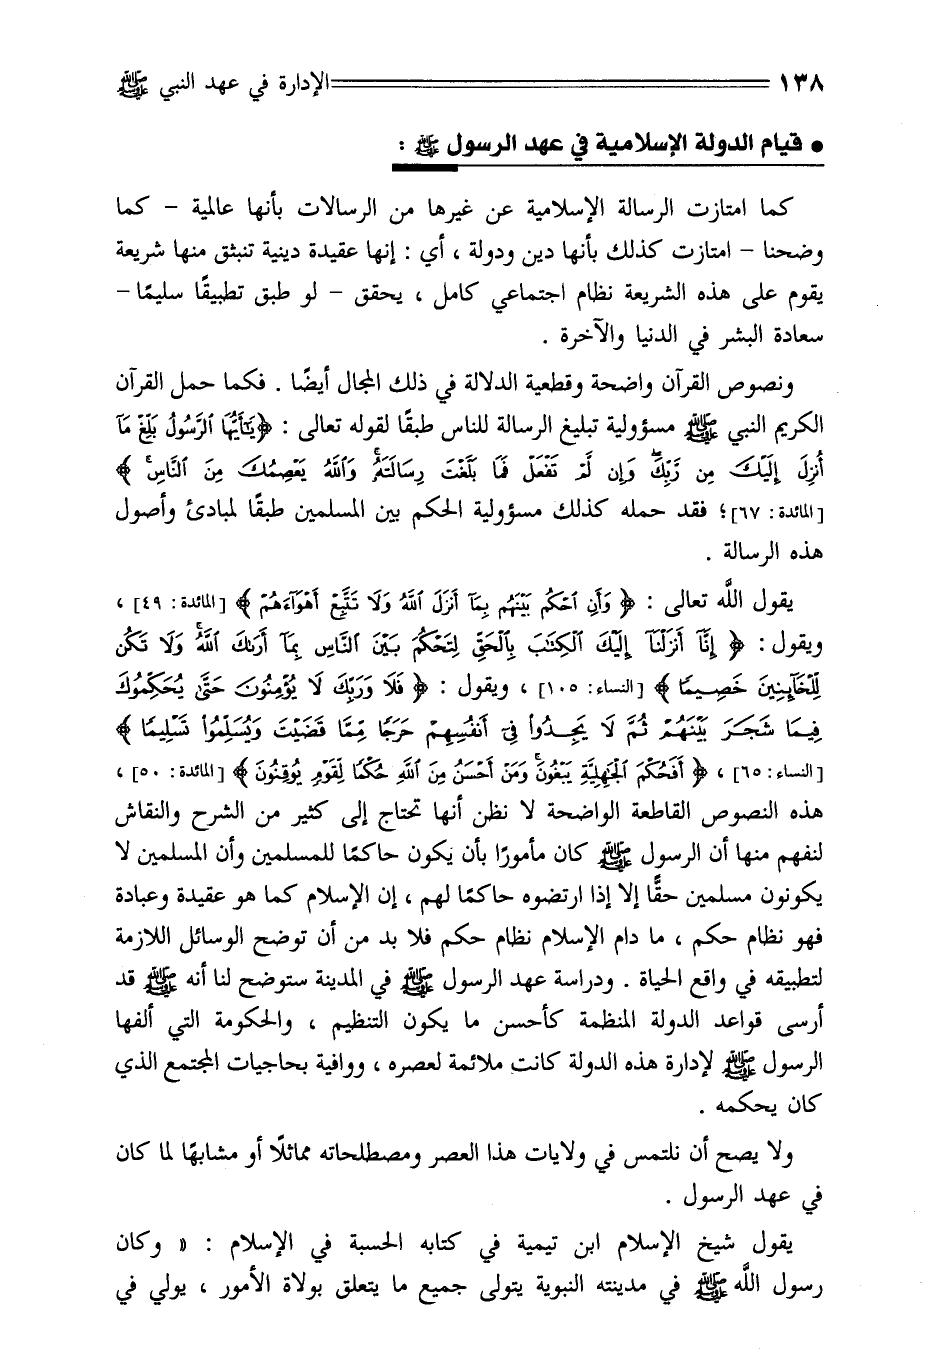 ١٣٨ الإدارة في عهد النبي ﷺ
• قيام الدولة الإسلامية في عهد الرسول ﷺ :
كما امتازت الرسالة الإسلامية عن غيرها من الرسالات بأنها عالمية – كما
وضحنا – امتازت كذلك بأنها دين ودولة ، أي : إنها عقيدة دينية تنبثق منها شريعة
يقوم على هذه الشريعة نظام اجتماعي كامل ، يحقق – لو طبق تطبيقًا سليمًا –
سعادة البشر في الدنيا والآخرة .
ونصوص القرآن واضحة وقطعية الدلالة في ذلك المجال أيضًا . فكما حمل القرآن
الكريم النبي ﷺ مسؤولية تبليغ الرسالة للناس طبقًا لقوله تعالى : ﴿ يَٰٓأَيُّهَا ٱلرَّسُولُ بَلِّغْ مَآ
أُنزِلَ إِلَيْكَ مِن رَّبِّكَ ۖ وَإِن لَّمْ تَفْعَلْ فَمَا بَلَّغْتَ رِسَالَتَهُۥ ۚ وَٱللَّهُ يَعْصِمُكَ مِنَ ٱلنَّاسِ ۗ ﴾
[المائدة : ٦٧]؛ فقد حمله كذلك مسؤولية الحكم بين المسلمين طبقًا لمبادئ وأصول
هذه الرسالة .
يقول اللَّه تعالى : ﴿ وَأَنِ ٱحْكُم بَيْنَهُم بِمَآ أَنزَلَ ٱللَّهُ وَلَا تَتَّبِعْ أَهْوَآءَهُمْ ﴾ [المائدة : ٤٩] ،
ويقول : ﴿ إِنَّآ أَنزَلْنَآ إِلَيْكَ ٱلْكِتَٰبَ بِٱلْحَقِّ لِتَحْكُمَ بَيْنَ ٱلنَّاسِ بِمَآ أَرَىٰكَ ٱللَّهُ ۚ وَلَا تَكُن
لِّلْخَآئِنِينَ خَصِيمًا ﴾ [النساء : ١٠٥] ، ويقول : ﴿ فَلَا وَرَبِّكَ لَا يُؤْمِنُونَ حَتَّىٰ يُحَكِّمُوكَ
فِيمَا شَجَرَ بَيْنَهُمْ ثُمَّ لَا يَجِدُوا۟ فِىٓ أَنفُسِهِمْ حَرَجًا مِّمَّا قَضَيْتَ وَيُسَلِّمُوا۟ تَسْلِيمًا ﴾
[النساء : ٦٥] ، ﴿ أَفَحُكْمَ ٱلْجَٰهِلِيَّةِ يَبْغُونَ ۚ وَمَنْ أَحْسَنُ مِنَ ٱللَّهِ حُكْمًا لِّقَوْمٍ يُوقِنُونَ ﴾ [المائدة : ٥٠] ،
هذه النصوص القاطعة الواضحة لا نظن أنها تحتاج إلى كثير من الشرح والنقاش
لنفهم منها أن الرسول ﷺ كان مأمورًا بأن يكون حاكمًا للمسلمين وأن المسلمين لا
يكونون مسلمين حقًّا إلا إذا ارتضوه حاكمًا لهم ، إن الإسلام كما هو عقيدة وعبادة
فهو نظام حكم ، ما دام الإسلام نظام حكم فلا بد من أن توضح الوسائل اللازمة
لتطبيقه في واقع الحياة . ودراسة عهد الرسول ﷺ في المدينة ستوضح لنا أنه ﷺ قد
أرسى قواعد الدولة المنظمة كأحسن ما يكون التنظيم ، والحكومة التي ألفها
الرسول ﷺ لإدارة هذه الدولة كانت ملائمة لعصره ، ووافية بحاجيات المجتمع الذي
كان يحكمه .
ولا يصح أن نلتمس في ولايات هذا العصر ومصطلحاته مماثلًا أو مشابهًا لما كان
في عهد الرسول .
يقول شيخ الإسلام ابن تيمية في كتابه الحسبة في الإسلام : « وكان
رسول اللَّه ﷺ في مدينته النبوية يتولى جميع ما يتعلق بولاة الأمور ، يولي في